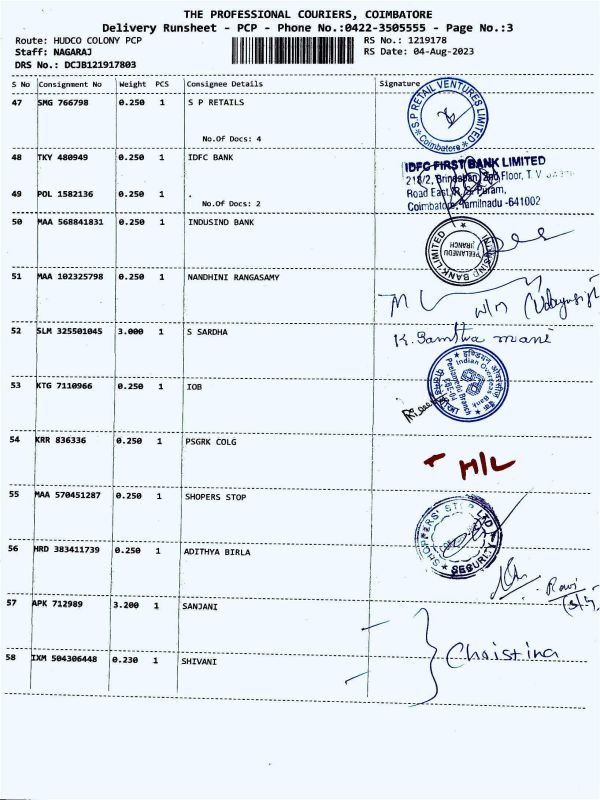 THE PROFESSIONAL COURIERS, COIMBATORE
Delivery Runsheet - PCP - Phone No.:0422-3505555 - Page No.:3
Route: HUDCO COLONY PCP RS No.: 1219178
Staff: NAGARAJ RS Date: 04-Aug-2023
DRS No.: DCJB121917803
S No Consignment No Weight PCS Consignee Details Signature
47 SMG 766798 0.250 1 S P RETAILS
S.P RETAIL VENTURES LIMITED
Coimbatore
No.Of Docs: 4
48 TKY 480949 0.250 1 IDFC BANK
IDFC FIRST BANK LIMITED
Floor, T. V.
49 POL 1582136 0.250 1 .
Road East, R. S. Puram,
No.Of Docs: 2
Coimbatore, Tamilnadu -641002
50 MAA 568841831 0.250 1 INDUSIND BANK
INDUSIND BANK LIMITED
PEELAMEDU
BRANCH
51 MAA 102325798 0.250 1 NANDHINI RANGASAMY
52 SLM 325501045 3.000 1 S SARDHA
53 KTG 7110966 0.250 1 IOB
Indian Overseas Bank
54 KRR 836336 0.250 1 PSGRK COLG
H/L
55 MAA 570451287 0.250 1 SHOPERS STOP
SHOPPERS' STOP LTD
SECURITY
56 HRD 383411739 0.250 1 ADITHYA BIRLA
Ravi
57 APK 712989 3.200 1 SANJANI
Christina
58 IXM 504306448 0.230 1 SHIVANI